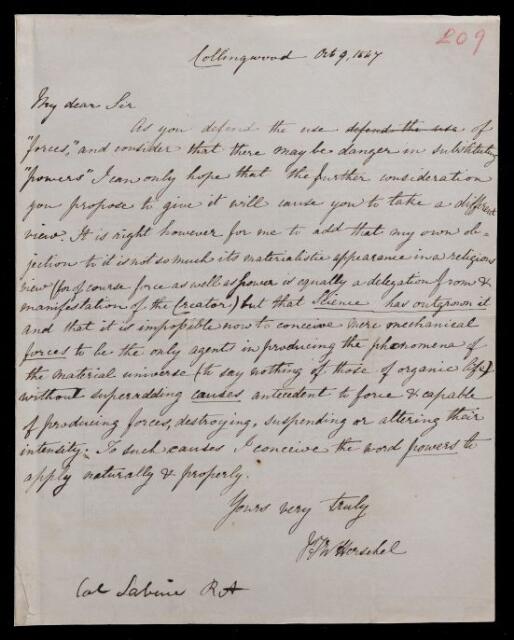 209
Collingwood Oct 9, 1847
My dear Sir
As you defend the use defend the use of
"forces," and consider that there may be danger in substituting
"powers" I can only hope that the further consideration
you propose to give it will cause you to take a different
view. It is right however for me to add that my own ob-
jection to it is not so much its materialistic appearance in a religious
view (for of course force as well as power is equally a delegation from &
manifestation of the Creator) but that Science has outgrown it
and that it is impossible now to conceive mere mechanical
forces to be the only agents in producing the phenomena of
the material universe (to say nothing of those of organic life)
without superadding causes antecedent to force & capable
of producing forces, destroying, suspending or altering their
intensity. To such causes I conceive the word powers to
apply naturally & properly.
Yours very truly
JFW Herschel
Col Sabine RA